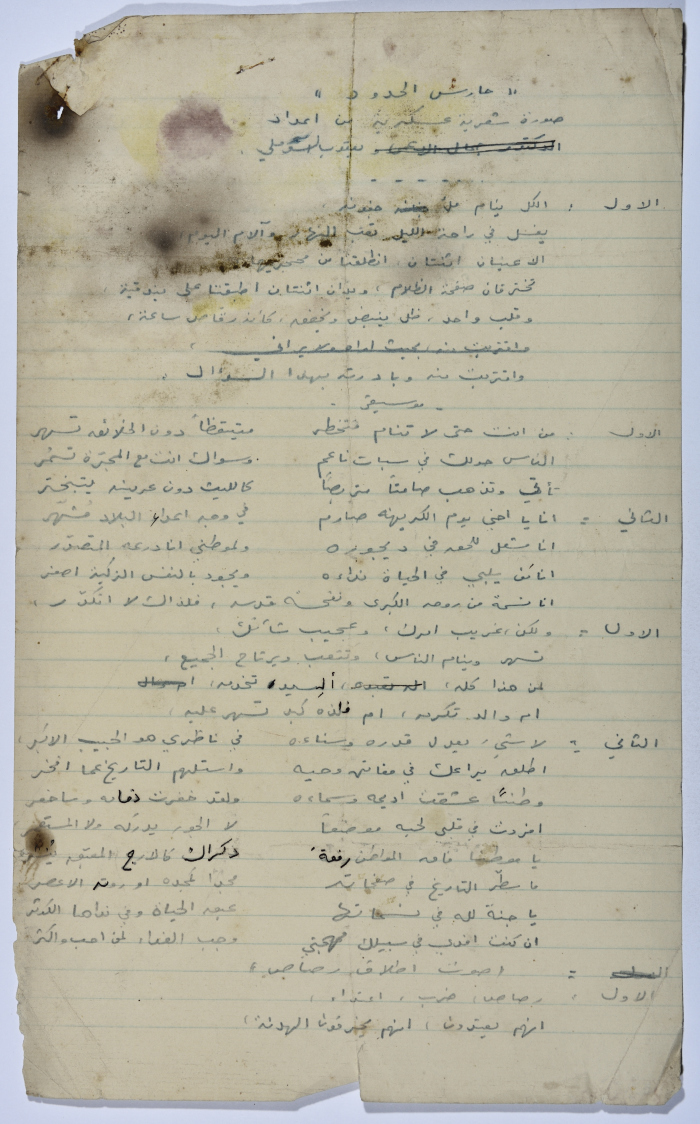 " حارس الحدود "
صورة شعرية عسكرية من اعداد
الدكتور جمال و يعقوب
الاول : الكل ينام ملئ جفونه
يغسل في راحة الليل تعب النهار وآلام اليوم
الا عينان اثنتان، انطلقتا من محجريهما
تخترقان صفحة الظلام، ويدان اثنتان اطبقتا على بندقية
وقلب واحد، ظل ينبض ويخفق، كأنه رقاص ساعة،
واقتربت منه، بحيث اراه ولا يراني،
واقتربت منه وبادرته بهذا السؤال :
- موسيقى -
الاول : من انت حتى لا تنام فتخطر متيقظاً دون الخلائق تسهر
الناس حولك في سبات ناعم وسواك انت مع المجرّة تسمر
تأتي وتذهب صامتاً متربصاً كالليث دون عرينه يتبختر
الثاني : انا يا اخي يوم الكريهة صارم في وجه اعداء البلاد مُشهّر
انا مشعل للحق في ديجوره ولموطني انا درعه المتصدّر
انا من يلبي في الحياة نداءه ويجود بالنفس الزكية اصغر
انا نسمة من روحه الكبرى ونفحة قدسه، فلذاك لا اتكدّر،
الاول : ولكن، غريب امرك، وعجيب شأنك،
تسهر وينام الناس، وتتعب ويرتاح الجميع،
لمن هذا كله، ألسيد تخدمه،
ام والد تكرمه، ام فلذة كبد تسهر عليه،
الثاني : لا شيء يعدل قدره وسناءه في ناظري هو الحبيب الاكبر،
اطلق يراعك في مفاتن وحيه واستلهم التاريخ عما افخر
وطنـاً عشقت اديمه وسماءه ولقد خفرت ذمامه وساخفر
افردت في قلبي لحبه موضعاً لا الحور يدركه ولا المستعمر
يا موطناً فاق المواطن رفعةً ذكراك كالارج المعتق
ما سطّر التاريخ في صفحاته مجداً كمجدك او روته الاعصر
يا جنة لله في نسماتها عبق الحياة وفي نداها الكوثر
ان كنت افدي في سبيلك مهجتي وجب الفداء لمن احب واكثر
( صوت اطلاق رصاص )
الاول : رصاص، ضرب، اعتداء،
انهم يعتدون، انهم يخرقون الهدنة،